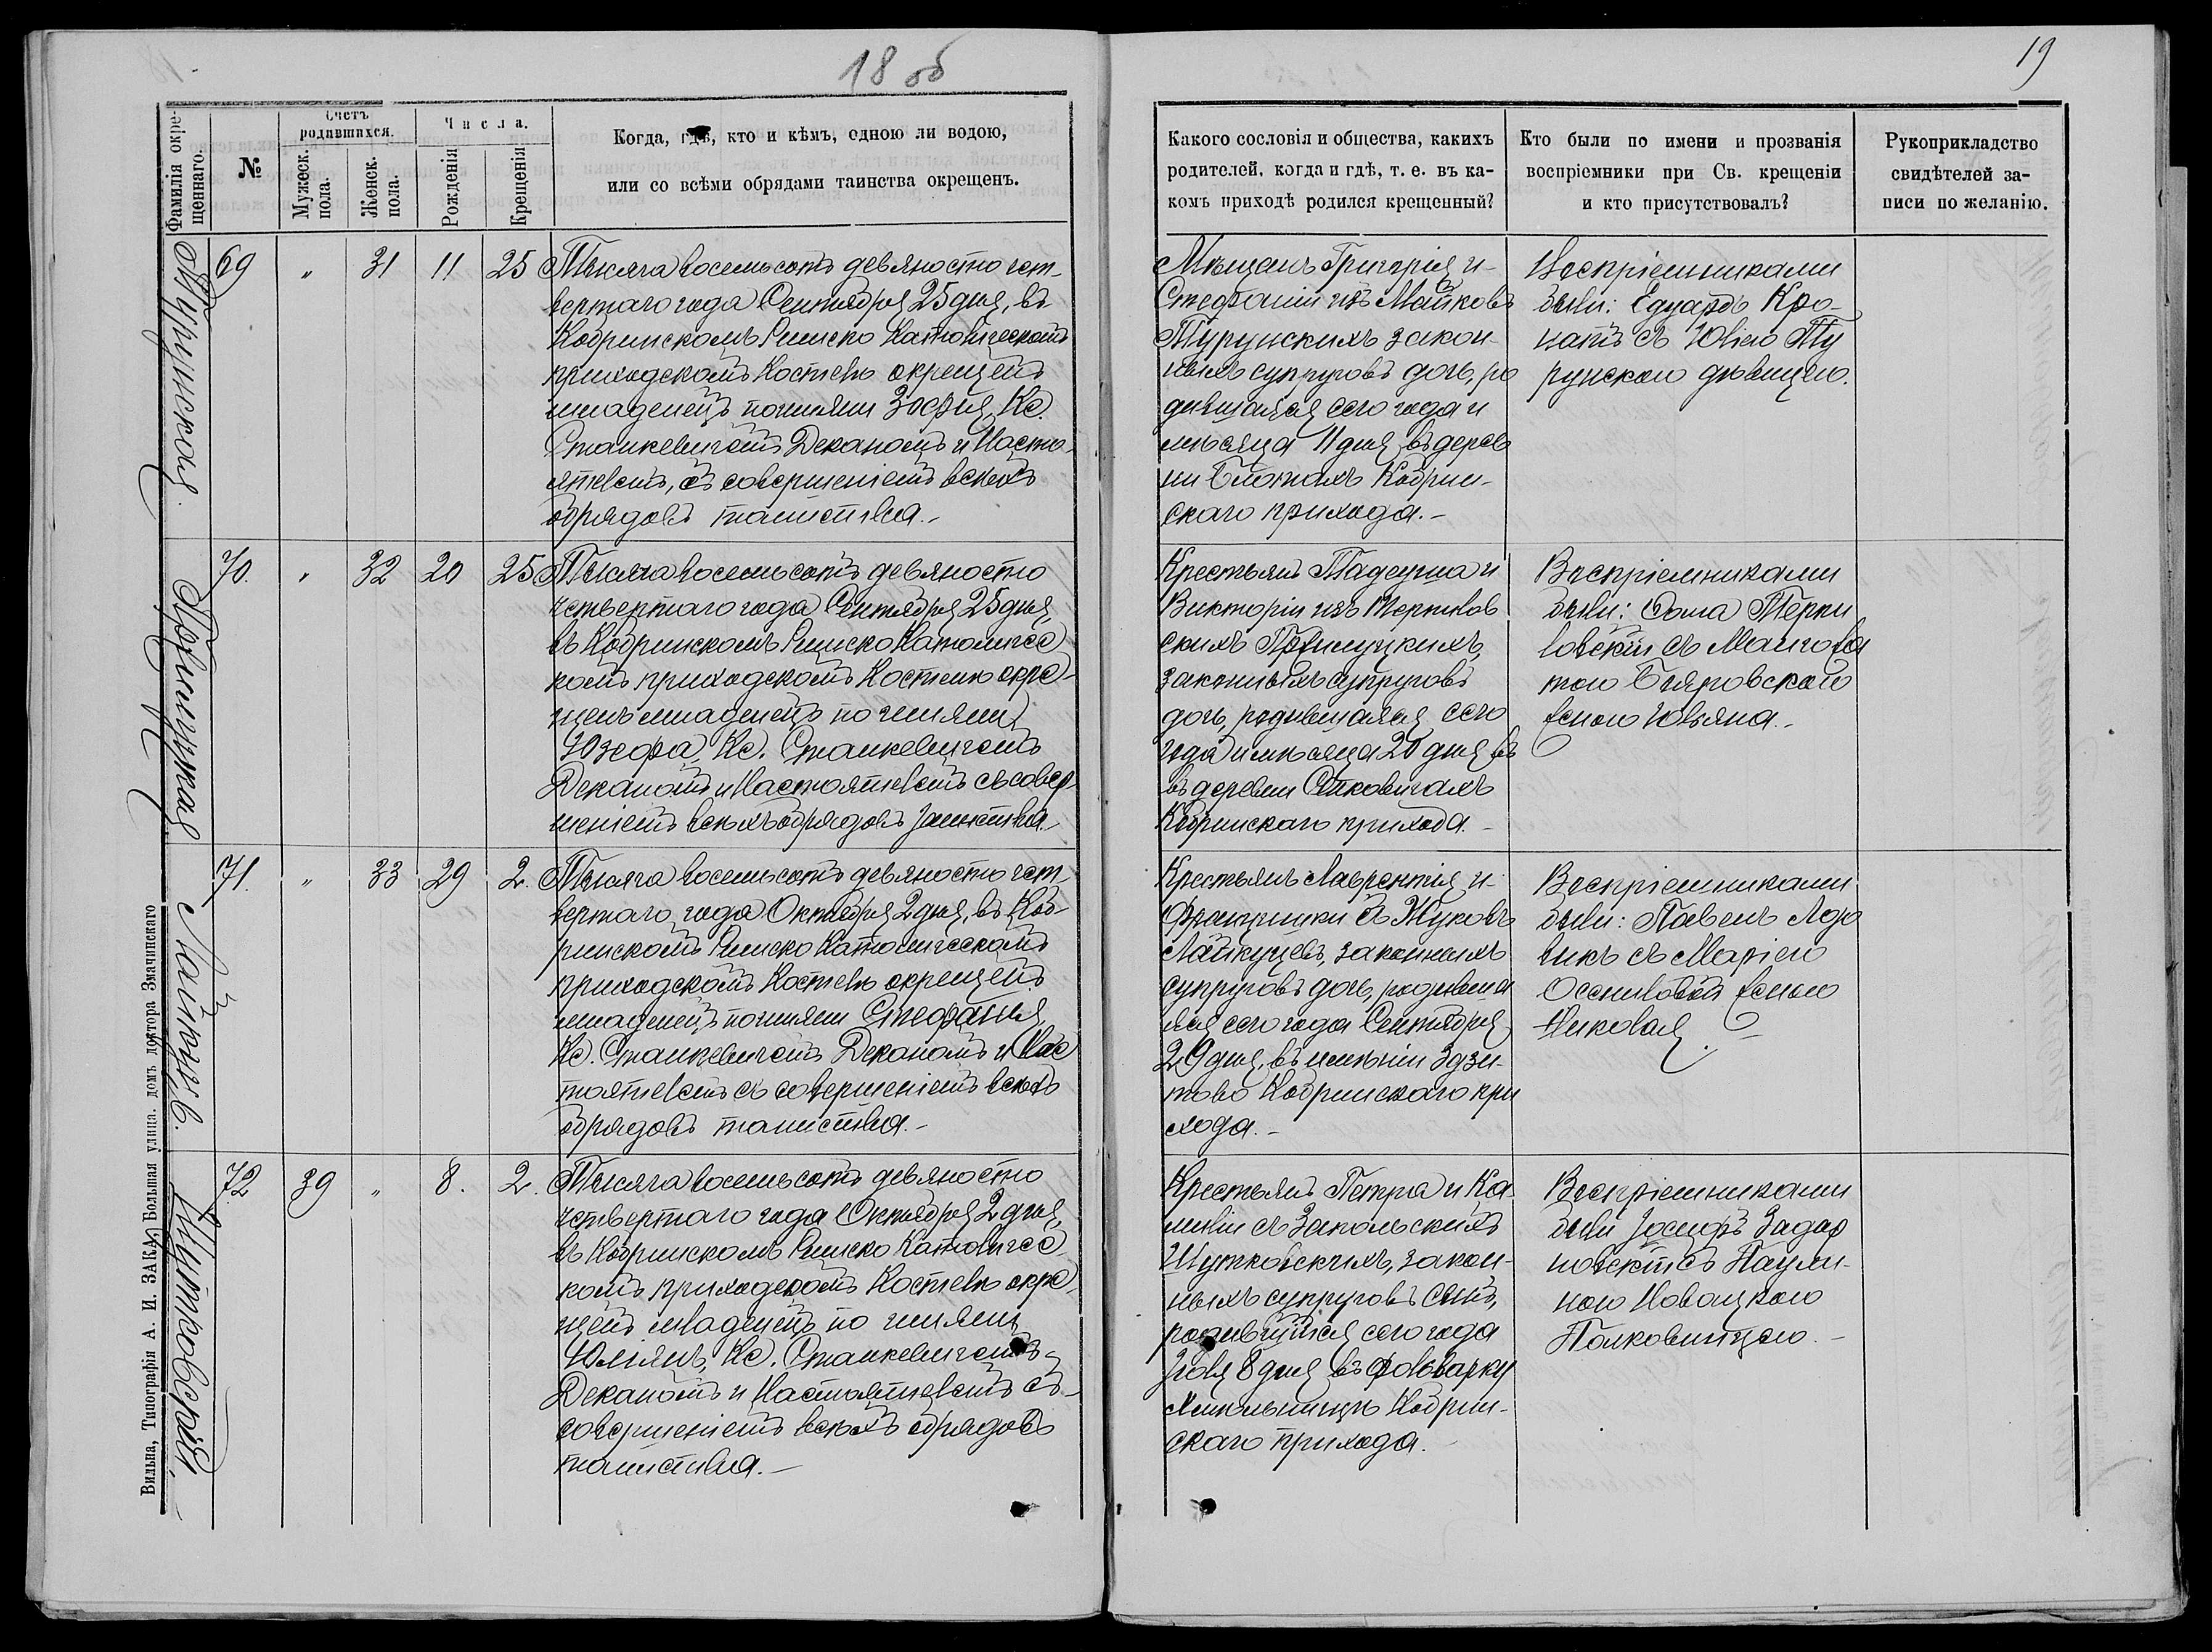 18 об
19
Фамилія окре-
щеннаго.
№
Счетъ
родившихся.
Мужеск.
пола.
Женск.
пола.
Числа.
Рожденія
Крещенія
Когда, гдѣ, кто и кѣмъ, одною ли водою,
или со всѣми обрядами таинства окрещенъ.
Какого сословія и общества, какихъ
родителей, когда и гдѣ, т. е. въ ка-
комъ приходѣ родился крещенный?
Кто были по имени и прозванія
воспріемники при Св. крещеніи
и кто присутствовалъ?
Рукоприкладство
свидѣтелей за-
писи по желанію.
Турунская
69 " 31 11 25
Тысяча восемьсотъ девяносто чет-
вертаго года Сентября 25 дня, въ
Кобринскомъ Римско Католическомъ
приходскомъ Костелѣ окрещенъ
младенецъ по имени Зофія, Кс.
Станкевичемъ Деканомъ и Насто-
ятелемъ, съ совершеніемъ всѣхъ
обрядовъ таинства.-
Мѣщанъ Григорія и-
Стефаніи изъ Майковъ
Турунскихъ закон-
ныхъ супруговъ дочь, ро
дившаяся сего года и
мѣсяца 11 дня, въ дерев
ни Блотахъ Кобрин-
скаго прихода.-
Воспріемниками
были: Едуардъ Кро-
натъ съ Юліею Ту
рунскою дѣвицею.
70. " 32 20 25
Тысяча восемьсотъ девяносто
четвертаго года Сентября 25 дня,
въ Кобринскомъ Римско Католичес
комъ приходскомъ Костелѣ окре-
щенъ младенецъ по имени
Юзефа, Кс. Станкевичемъ
Деканомъ и Настоятелемъ съ совер-
шеніемъ всѣхъ обрядовъ таинства.-
Крестьянъ Тадеуша и
Викторіи изъ
скихъ
законныхъ супруговъ
дочь, родившаяся сего
года и мѣсяца 20 дня въ
въ деревни
Кобринскаго прихода.-
Воспріемниками
были: Ѳома
ловскій съ
тою
женою Юльяна.-
Лайкуцъ.
71. " 33 29 2.
Тысяча восемьсотъ девяносто чет-
вертаго года Октября 2 дня, въ Коб-
ринскомъ Римско Католическомъ
приходскомъ Костелѣ окрещенъ
младенецъ по имени Стефанія,
Кс. Станкевичемъ Деканомъ и Нас
тоятелемъ съ совершеніемъ всѣхъ
обрядовъ таинства.-
Крестьянъ Лаврентія и-
Францишки съ Жуковъ
Лайкуцевъ, законныхъ
супруговъ дочь, родивша
яся сего года Сентября
29 дня, въ имѣніи Здзи-
тово Кобринскаго при
хода.-
Воспріемниками
были: Павелъ
викъ съ Маріею
женою
Николая.
Шутковскій.
72 39 " 8. 2.
Тысяча восемьсотъ девяносто
четвертаго года Октября 2 дня,
въ Кобринскомъ Римско Католичес
комъ приходскомъ Костелѣ окре-
щенъ младенецъ по имени
Юліянъ, Кс. Станкевичемъ-
Деканомъ и Настоятелемъ съ-
совершеніемъ всѣхъ обрядовъ
таинства.-
Крестьянъ Петра и Ка
миліи съ Закольскихъ
Шутковскихъ, закон-
ныхъ супруговъ сынъ,
родившійся сего года
Іюля 8 дня въ фольварку
Кобрин-
скаго прихода.
Воспріемниками
были Іосифъ
новскій съ Паули-
ною Новацкою
Полковницею.-
Вильна, Типографія А. И. ЗАКА, Большая улица. домъ доктора Змачинскаго